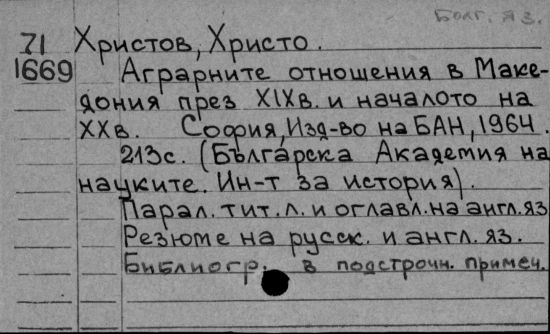 Болг. яз.
71 Христов, Христо.
1669 Аграрните отношения в Маке-
дония през XIXв. и началото на
XXв. София, Изд-во на БАН, 1964.
213с. (Българска Академия на
науките. Ин-т за история).
Парал. тит. л. и оглавл. на англ. яз
Резюме на русск. и англ. яз.
Библиогр. в подстрочн. примеч.